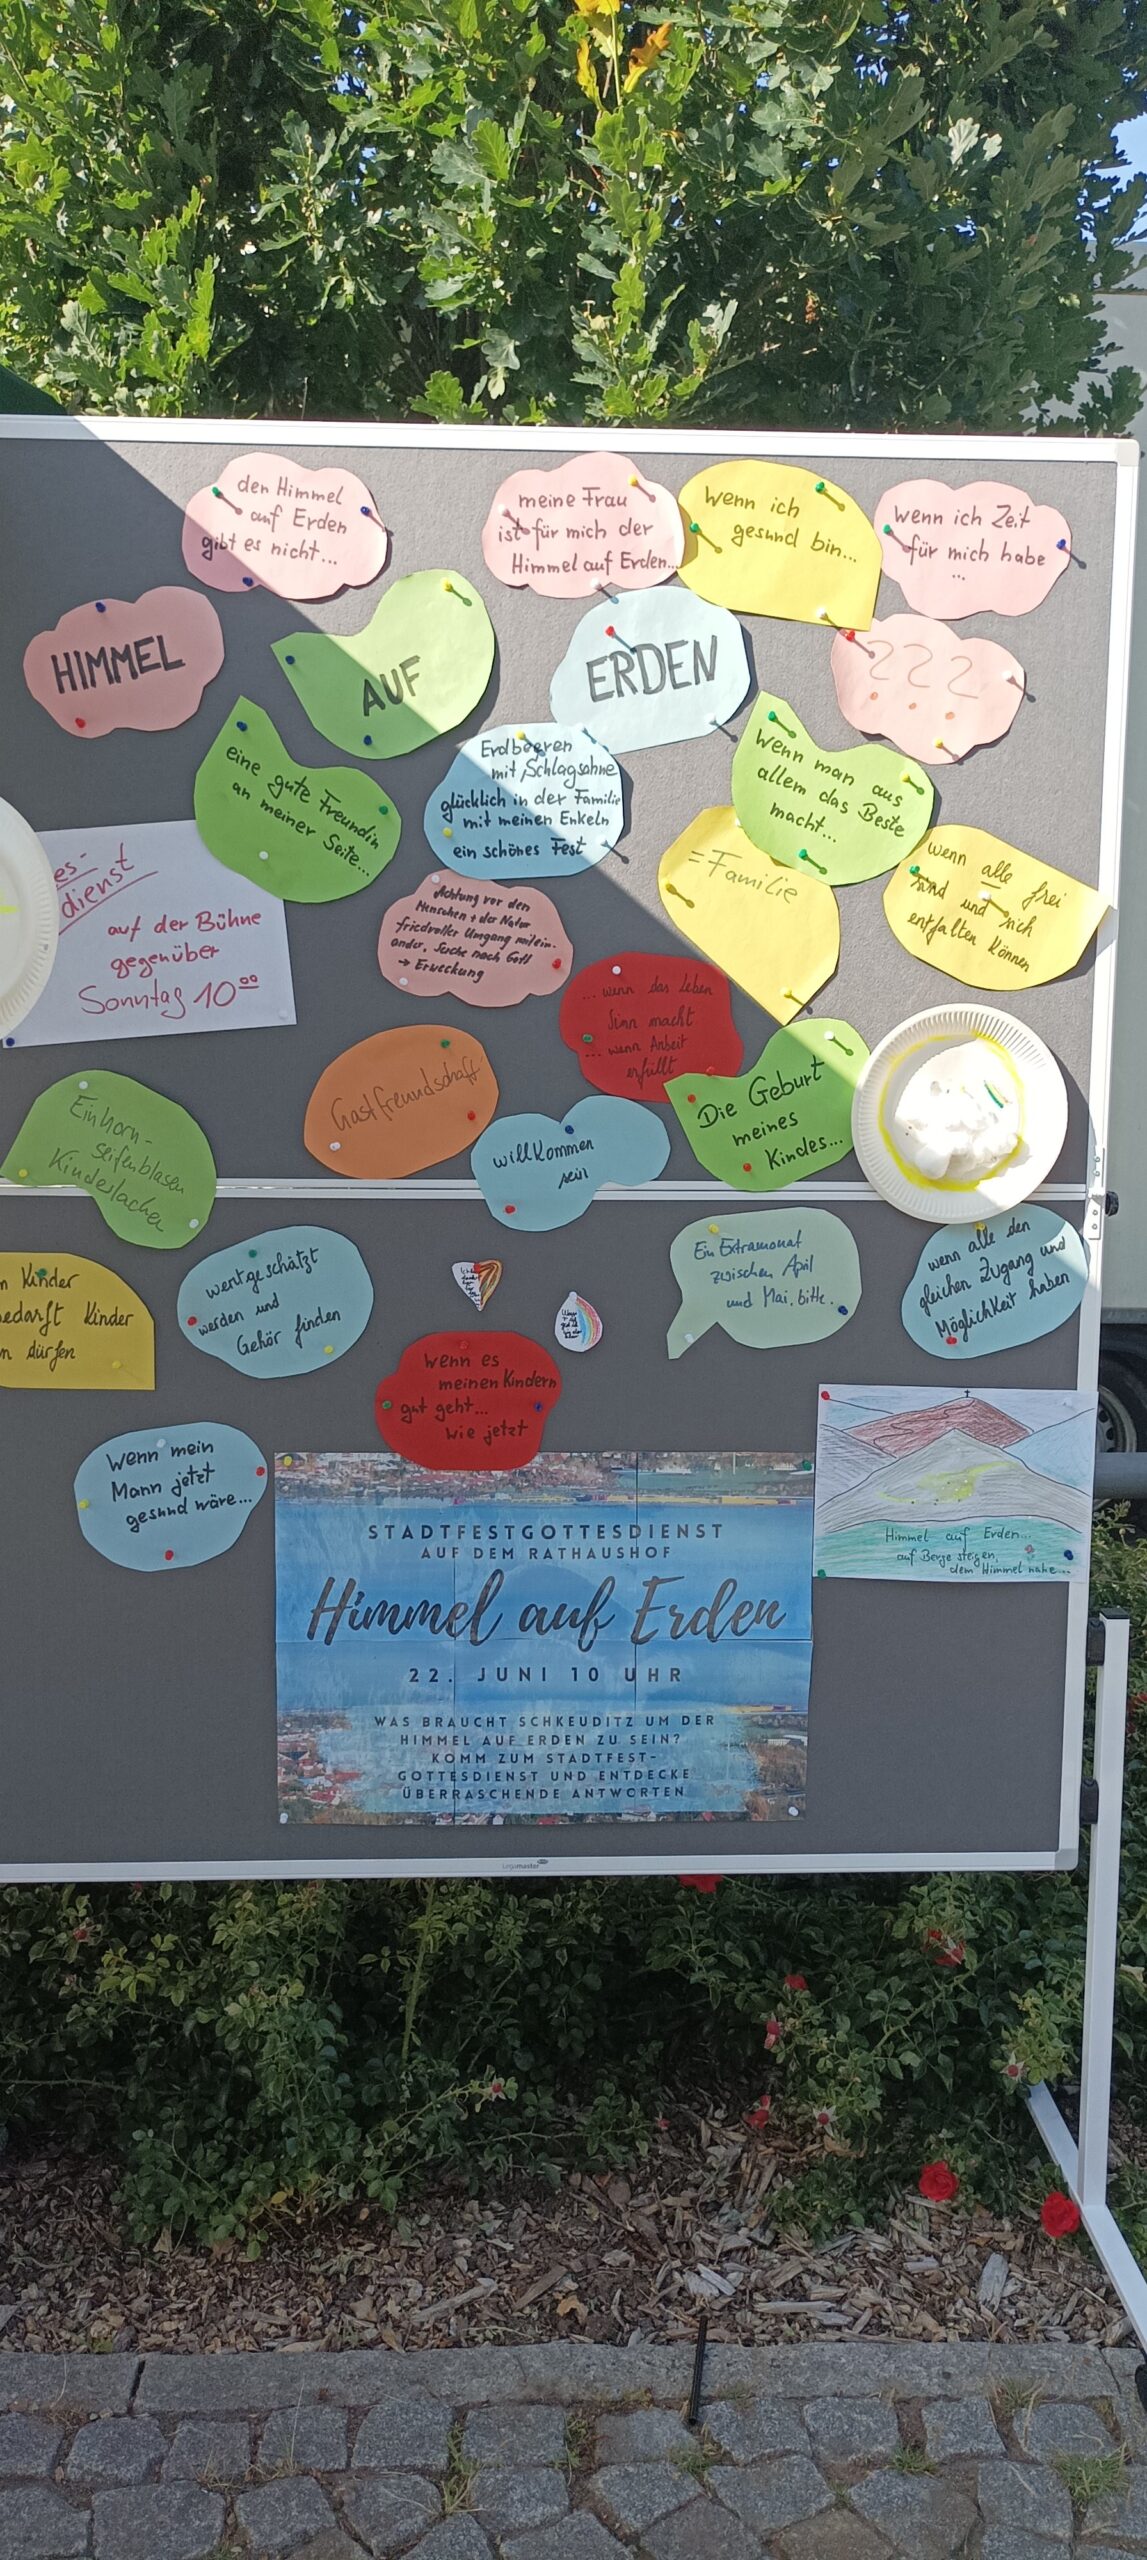 den Himmel
auf Erden
gibt es nicht...
meine Frau
ist für mich der
Himmel auf Erden...
wenn ich
gesund bin...
wenn ich Zeit
für mich habe
...
HIMMEL
AUF
ERDEN
???
eine gute Freundin
an meiner Seite...
Erdbeeren
mit Schlagsahne
glücklich in der Familie
mit meinen Enkeln
ein schönes Fest
Wenn man aus
allem das Beste
macht...
= Familie
wenn alle frei
sind und sich
entfalten können
es-
dienst
auf der Bühne
gegenüber
Sonntag 10 00
Achtung vor den
Menschen + der Natur
friedvoller Umgang mitein-
ander, Suche nach Gott
→ Erweckung
... wenn das Leben
Sinn macht
... wenn Arbeit
erfüllt
Gastfreundschaft
willkommen
sein
Die Geburt
meines
Kindes...
Einhorn-
seifenblasen
Kinderlachen
n Kinder
edarft Kinder
n dürfen
wertgeschätzt
werden und
Gehör finden
Ein Extramonat
zwischen April
und Mai, bitte.
wenn alle den
gleichen Zugang und
Möglichkeit haben
wenn es
meinen Kindern
gut geht...
wie jetzt
Wenn mein
Mann jetzt
gesund wäre...
STADTFESTGOTTESDIENST
AUF DEM RATHAUSHOF
Himmel auf Erden
22. JUNI 10 UHR
WAS BRAUCHT SCHKEUDITZ UM DER
HIMMEL AUF ERDEN ZU SEIN?
KOMM ZUM STADTFEST-
GOTTESDIENST UND ENTDECKE
ÜBERRASCHENDE ANTWORTEN
Himmel auf Erden...
auf Berge steigen,
dem Himmel nahe...
Legamaster